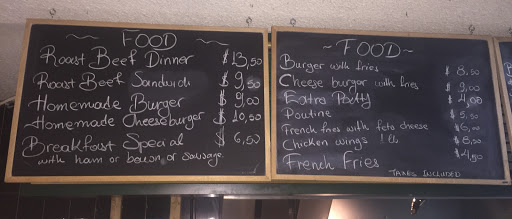 ~ FOOD ~
Roast Beef Dinner $13,50
Roast Beef Sandwich $9,50
Homemade Burger $9,00
Homemade Cheeseburger $10,50
Breakfast Special $6,50
with ham or bacon or sausage
~ FOOD ~
Burger with fries $8,50
Cheese burger with fries $9,00
Extra Patty $4,00
Poutine $5,50
French fries with feta cheese $6,00
Chicken wings 1 lb $8,00
French Fries $4,50
TAXES INCLUDED